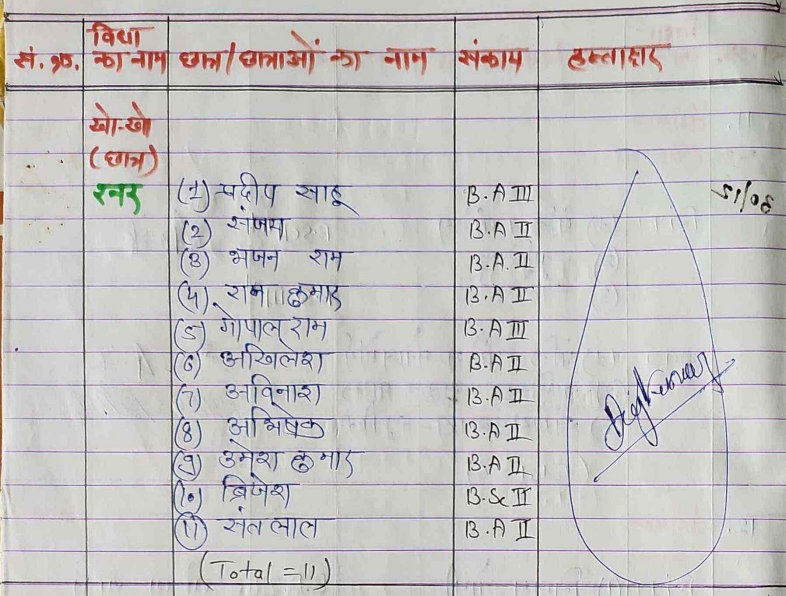 विधा
सं. क्र. का नाम छात्र/छात्राओं का नाम संकाय हस्ताक्षर
खो-खो
(छात्र)
रनर (1) प्रदीप साहू B.A III
(2) संजय B.A II
(3) भजन राम B.A. II
(4) राम कुमार B.A II
(5) गोपाल राम B.A III
(6) अखिलेश B.A II
(7) अविनाश B.A II
(8) अभिषेक B.A II
(9) उमेश कुमार B.A II
(10) ब्रिजेश B.Sc II
(11) संत लाल B.A II
(Total = 11)